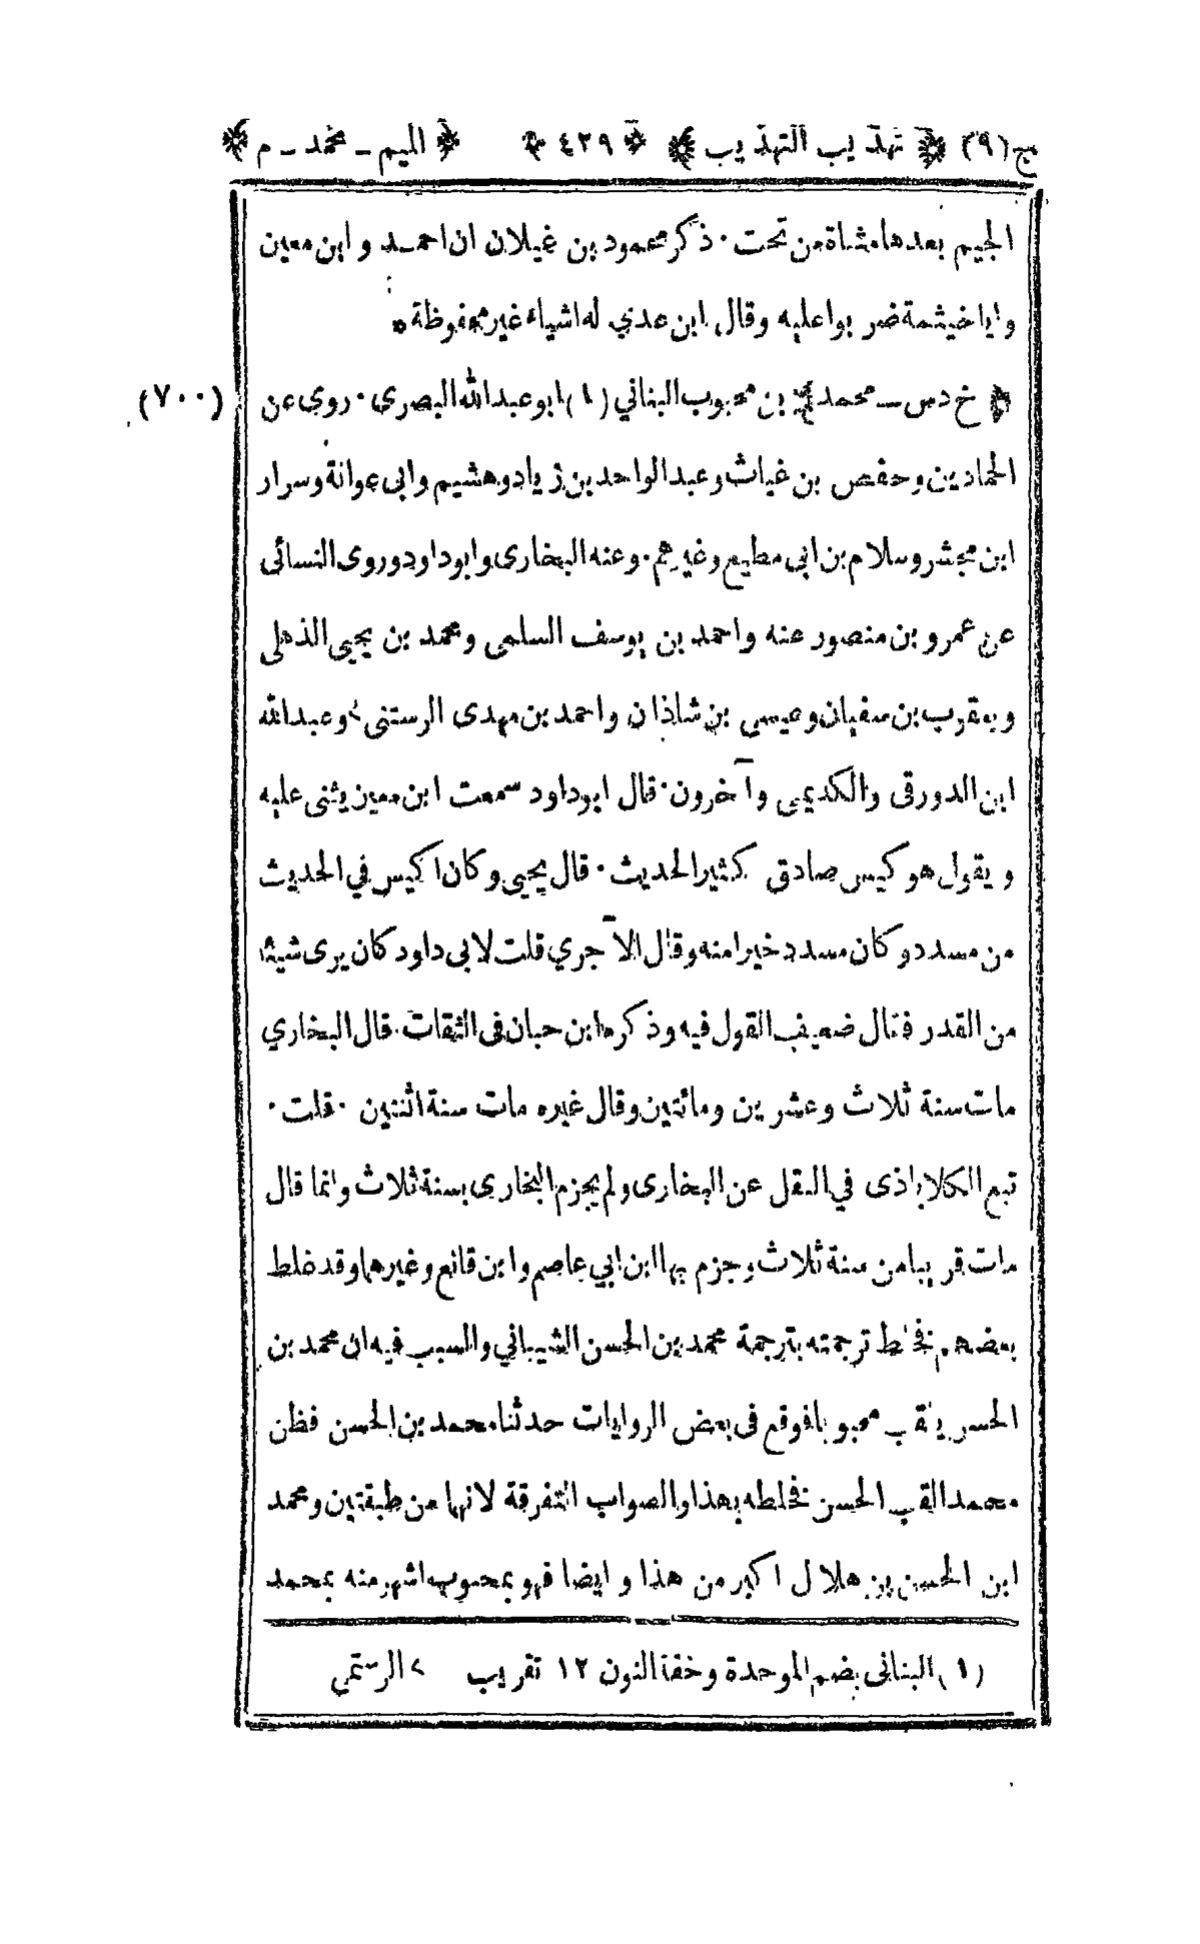 مج(٩) ﴿ تهذيب التهذيب ﴾ ﴿ ٤٢٩ ﴾ ﴿ الميم ـ محمد ـ م ﴾
الجيم بعدها مثناة من تحت · ذكر محمود بن غيلان ان احمد وابن معين
وابا خيثمة ضربوا عليه وقال ابن عدي له اشياء غير محفوظة *
﴿ خ د س ـ محمد ﴾ بن محبوب البناني (١) ابو عبد الله البصري · روى عن (٧٠٠)
الحمادين وحفص بن غياث وعبد الواحد بن زياد وهشيم وابي عوانة وسرار
ابن مجشر وسلام بن ابي مطيع وغيرهم · وعنه البخاري وابو داود وروى النسائي
عن عمرو بن منصور عنه واحمد بن يوسف السلمي ومحمد بن يحيى الذهلي
ويعقوب بن سفيان وعيسى بن شاذان واحمد بن مهدي الرستنى ٢ وعبد الله
ابن الدورقي والكديمي وآخرون · قال ابو داود سمعت ابن معين يثنى عليه
ويقول هو كيس صادق كثير الحديث · قال يحيى وكان اكيس في الحديث
من مسدد وكان مسدد خيرا منه وقال الآجري قلت لابى داود كان يرى شيئا
من القدر فقال ضعيف القول فيه وذكره ابن حبان فى الثقات · قال البخاري
مات سنة ثلاث وعشرين ومائتين وقال غيره مات سنة اثنتين · قلت ·
تبع الكلاباذى في النقل عن البخارى ولم يجزم البخارى بسنة ثلاث وانما قال
مات قريبا من سنة ثلاث وجزم بها ابن ابي عاصم وابن قانع وغيرهما وقد غلط
بعضهم فخلط ترجمته بترجمة محمد بن الحسن الشيباني والسبب فيه ان محمد بن
الحسن يلقب محبوبا فوقع فى بعض الروايات حدثنا محمد بن الحسن فظن
محمدا لقب الحسن فخلطه بهذا والصواب التفرقة لانهما من طبقتين ومحمد
ابن الحسن بن هلال اكبر من هذا وايضا فهو بمحبوب اشهر منه بمحمد
(١) البنانى بضم الموحدة وخفة النون ١٢ تقريب ٢ الرستمي